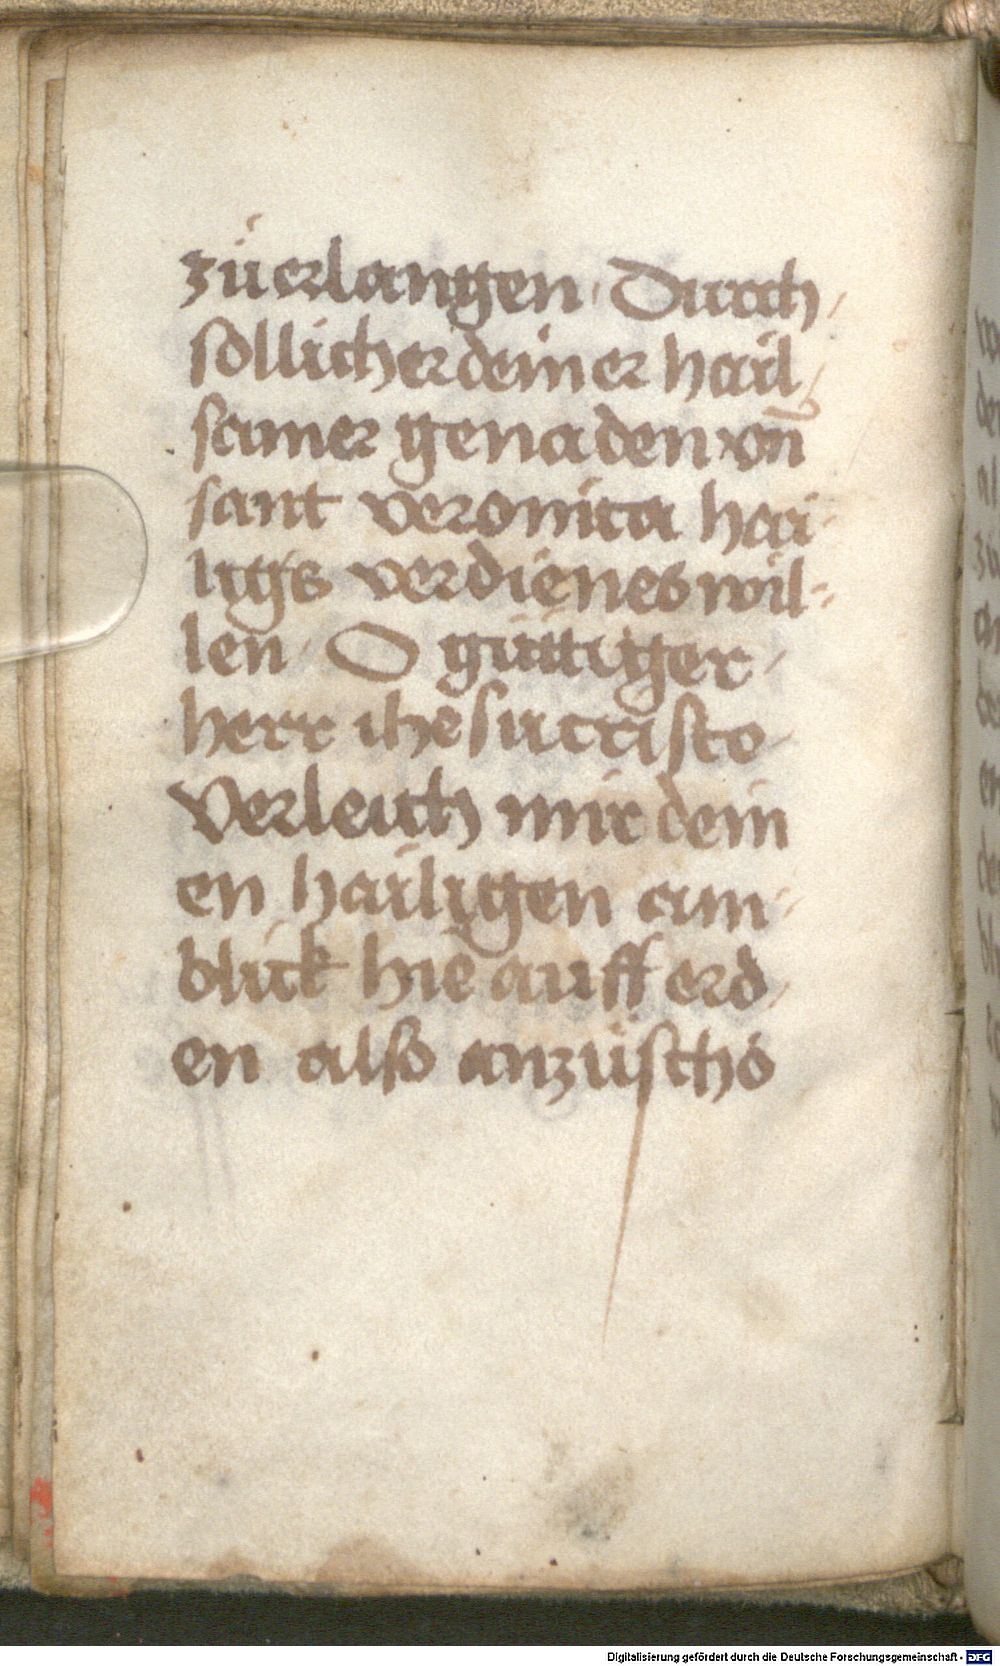 zůerlangen / Durch /
sollicher deiner hail
samer genaden vn̄
sant veronica hai-
ligs verdienes wil-
len / O gůttiger /
herr ihesu cristo /
Verleich mir dein
en hailigen ann-
blick hie auff erd /
en also anzůscho
Digitalisierung gefördert durch die Deutsche Forschungsgemeinschaft - DFG